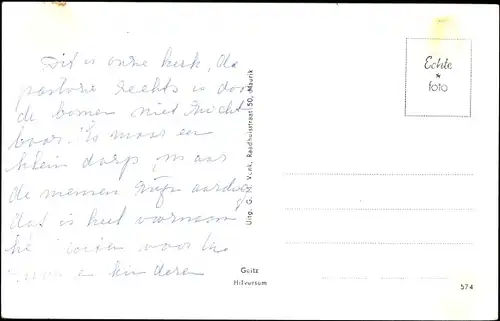 Dit is onze kerk, de
pastorie rechts is door
de bomen niet zicht
baar. Is maar een
klein dorp, maar
de mensen zijn aardig
dat is het voornaam
voor
en kinderen
Uitg. G. H. V.nk, Raadhuisstraat 50, Maurik
Echte
foto
Geitz
Hilversum
574